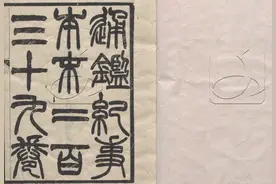 通鑑紀事
本末二百
三十九卷